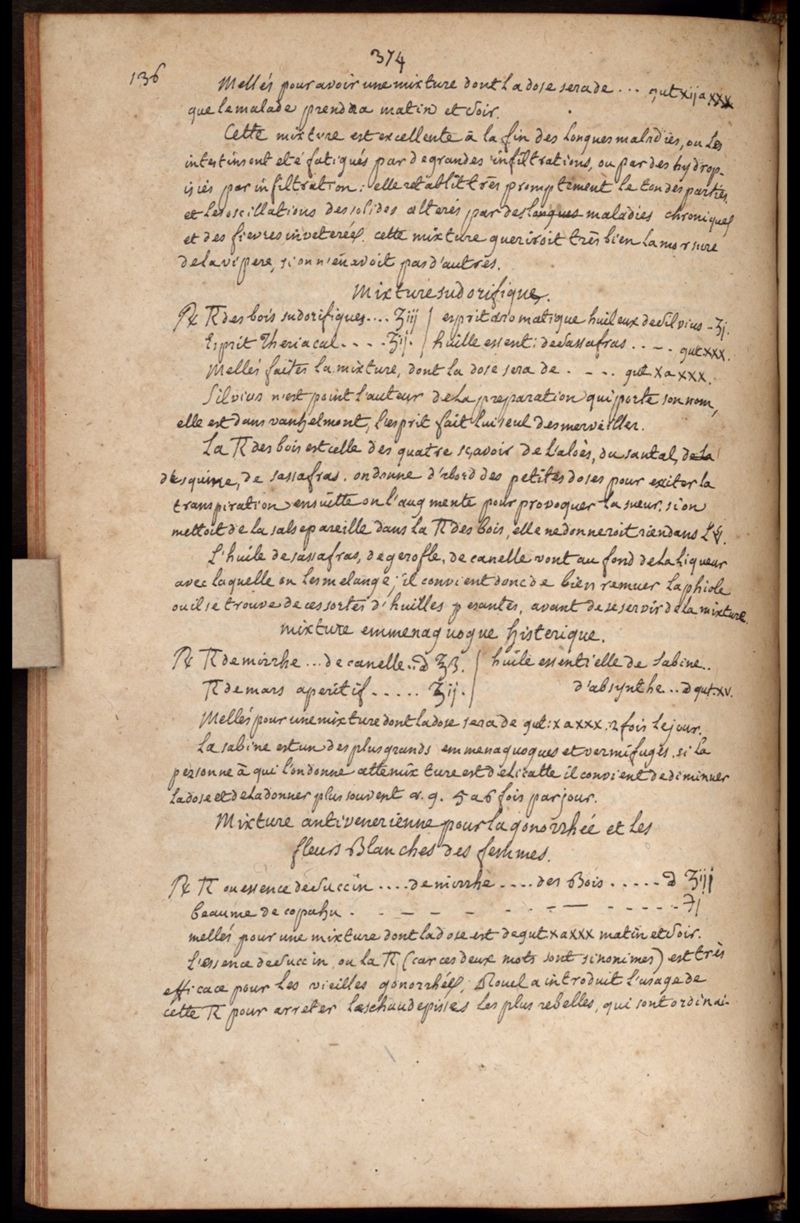 374
136
Mellés pour avoir une mixture dont la dose sera de ... gut xij a xxx
que le malade prendra matin et soir.
Cette mixture est excellente à la fin des longues maladies, ou les
intestins ont eté fatigués par de grandes infiltrations, ou par des hydrop-
isies par infiltration; elle retablit très promptement le ton des parties
et les oscillations des solides alterés par des longues maladies chroniques
et des fievres inveterées. cette mixture queriroit très bien la morsure
de la vipere, si on n'en avoit pas d'autres.
Mixture sudorifique.
℞ ℼ des bois sudorifiques.... ʒiij / esprit aromatique huileux de Silvius - ʒj.
Esprit Theriacal. - - - - ʒij. / huille essent: de sassafras.. - . gut xxx.
Mellés faites la mixture, dont la dose sera de . - - . gut x a xxx.
Silvius n'est point l'auteur de la preparation qui porte son nom,
elle est dans vanhelmont, l'esprit fait lui seul des merveilles.
La ℼ des bois est celle des quatre sçavoir de l'aloès, du santal, de la
d'esquine, de sassafras. on donne d'abord des petites doses pour exiter la
transpiration, ensuitte on l'augmente pour provoquer la sueur. si on
mettoit de la salsepareille dans la ℼ des bois, elle ne donneroit rien dans l'
L'huile de sassafras, de gerofle, de canelle vont au fond de la liqueur
avec laquelle on les melange; il convient donc de bien remuer la phiole
ou il se trouve de ces sortes d'huilles pesantes, avant de se servir de la mixture.
mixture emmenaguogue histerique.
℞ ℼ de mirrhe ... de canelle .. ʒß. / huile essentielle de sabine..
ℼ de mars aperitif ..... ʒij. / d'absynthe .. gut. xv.
Mellés pour une mixture dont la dose sera de gut: x a xxx. 2 fois le jour.
La sabine est un des plus grands emmenaguogues et vermifuges. si la
personne à qui l'on donne cette mixture est delicatte il convient de diminuer
la dose et de la donner plus souvent v. g. 5 a 6 fois par jour.
Mixture antivenerienne pour la gonorrhée et les
fleurs Blanches des femmes.
℞ ℼ ou essence de Succin .... de mirrhe .... des Bois ..... ʒiij
beaume de copahu . - - - - - - - - - - - ʒj
mellés pour une mixture dont la dose est de gut x a xxx matin et soir.
L'essence de Succin ou la ℼ (car ces deux mots sont sinonimes) est très
efficace pour les vieilles gonorrhées; Rouel a introduit l'usage de
cette ℼ pour arreter les chaudepisses les plus rebelles, qui sont ordinai-